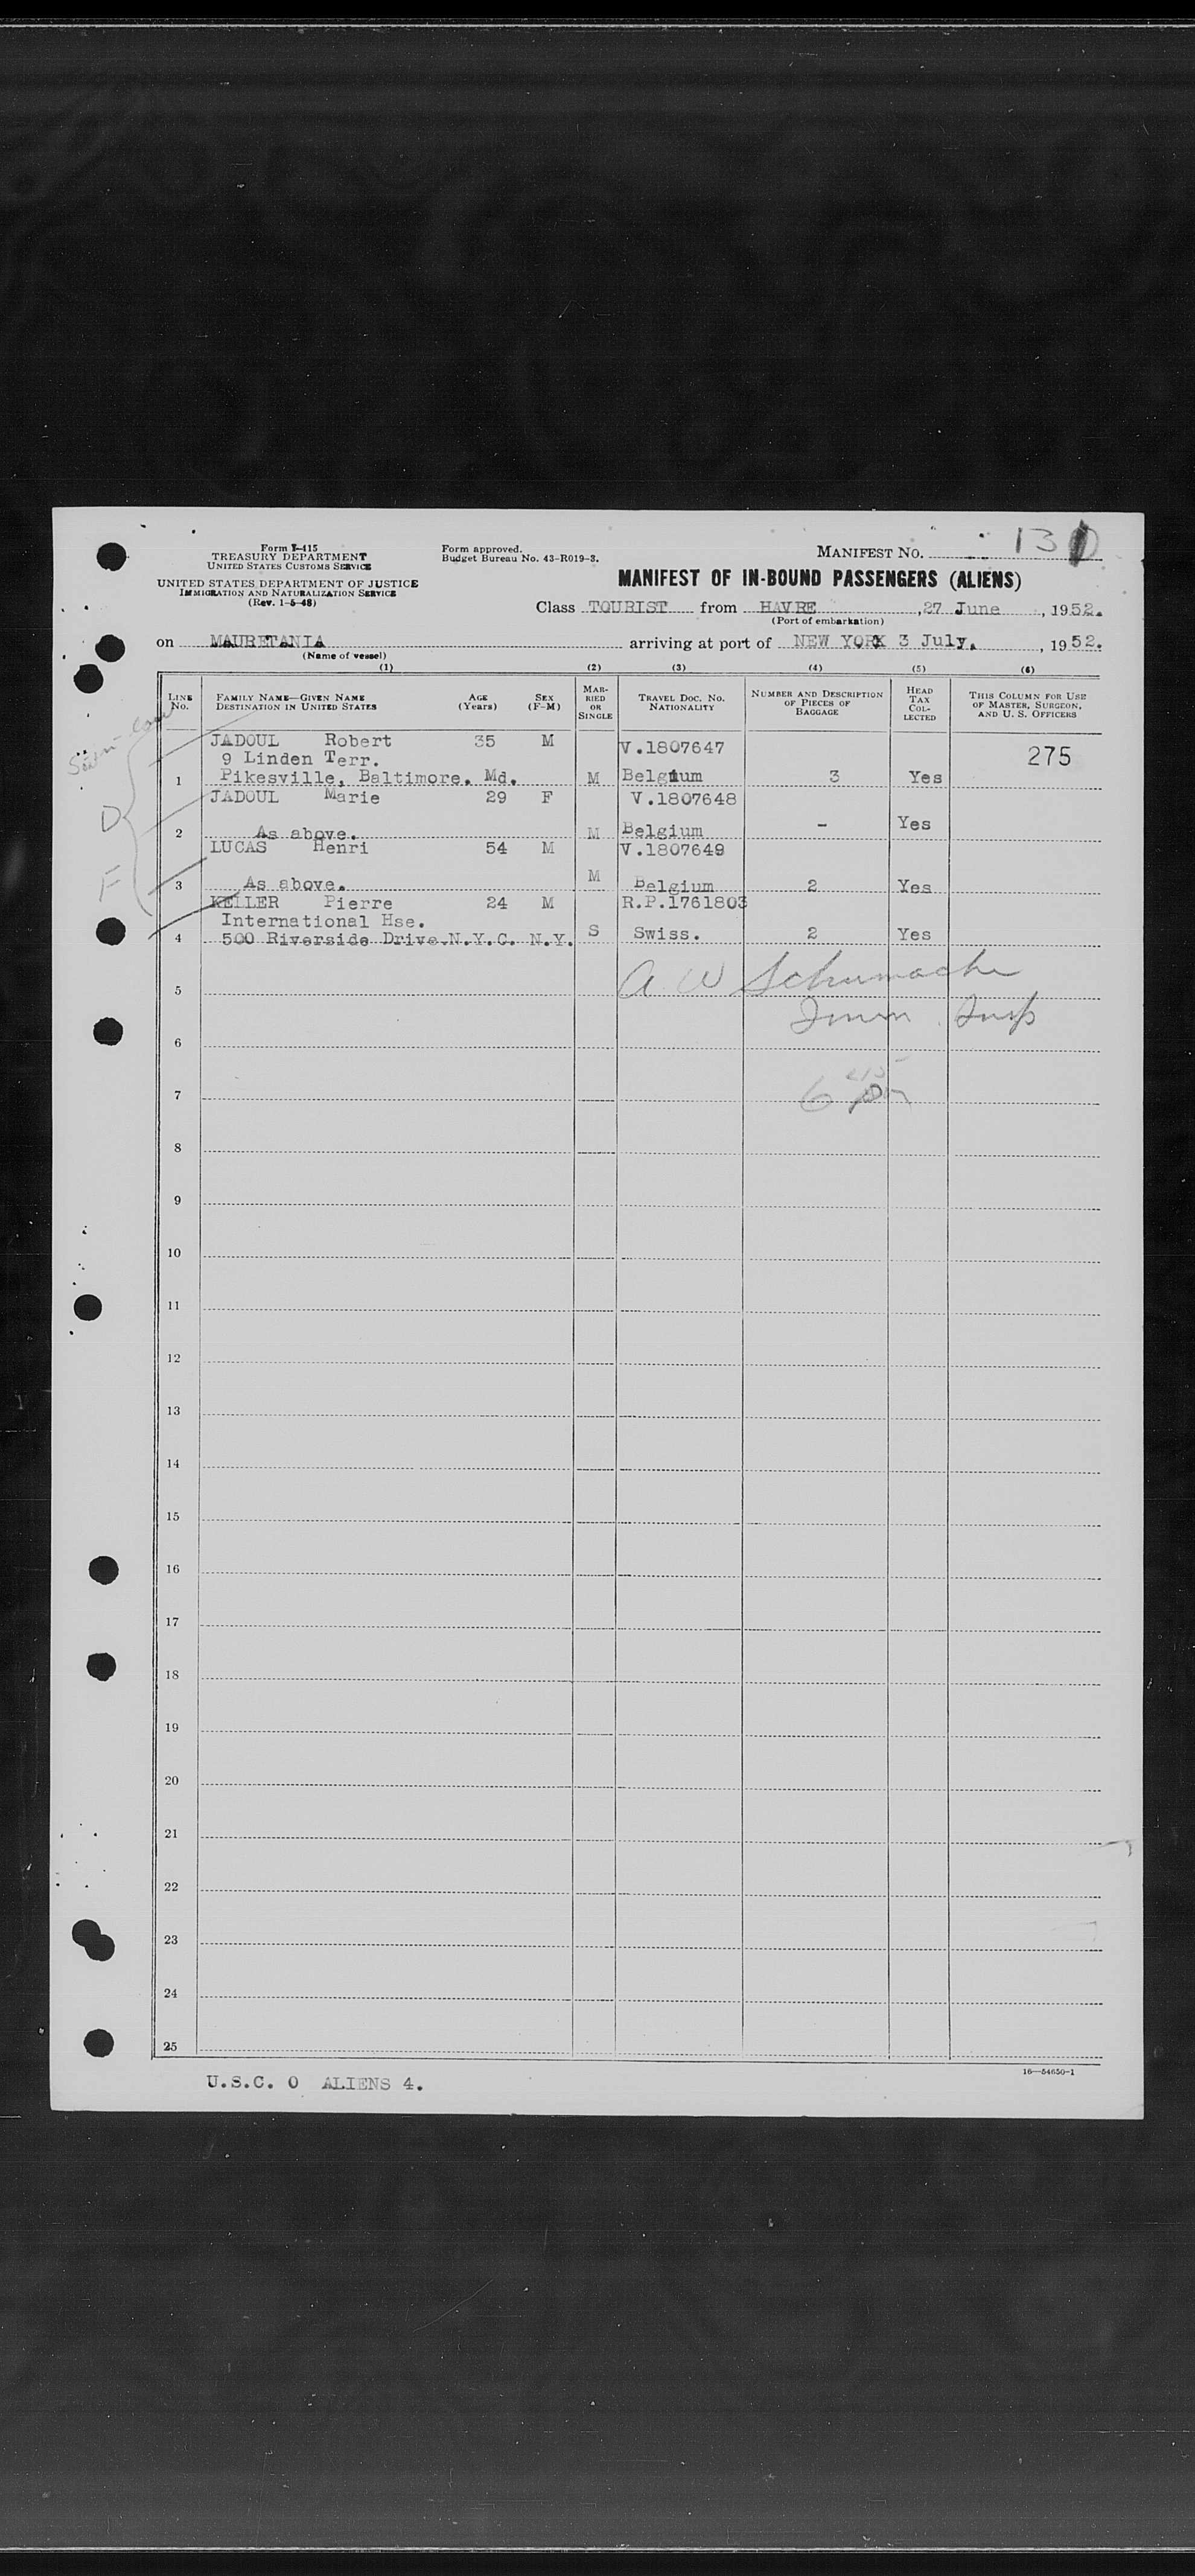 Form I-415
TREASURY DEPARTMENT
UNITED STATES CUSTOMS SERVICE
Form approved.
Budget Bureau No. 43-R019-3.
MANIFEST NO.
UNITED STATES DEPARTMENT OF JUSTICE
IMMIGRATION AND NATURALIZATION SERVICE
(Rev. 1-5-48)
MANIFEST OF IN-BOUND PASSENGERS (ALIENS)
Class TOURIST from HAVRE, 27 June, 1952.
(Port of embarkation)
on MAURETANIA arriving at port of NEW YORK 3 July, 1952.
(Name of vessel)
(1) (2) (3) (4) (5) (6)
LINE No. FAMILY NAME—GIVEN NAME DESTINATION IN UNITED STATES AGE (Years) SEX (F-M) MARRIED OR SINGLE TRAVEL DOC. NO. NATIONALITY NUMBER AND DESCRIPTION OF PIECES OF BAGGAGE HEAD TAX COLLECTED THIS COLUMN FOR USE OF MASTER, SURGEON, AND U. S. OFFICERS
JADOUL Robert 35 M V.1807647 275
9 Linden Terr.
1 Pikesville, Baltimore. Md. M Belgium 3 Yes
JADOUL Marie 29 F V.1807648
D
2 As above. M Belgium - Yes
LUCAS Henri 54 M V.1807649
F
3 As above. M Belgium 2 Yes
KELLER Pierre 24 M R.P.1761803
International Hse.
4 500 Riverside Drive.N.Y.C. N.Y. S Swiss. 2 Yes
A W Schumacher
5
Imm. Insp
6
7
8
9
10
11
12
13
14
15
16
17
18
19
20
21
22
23
24
25
16—54650-1
U.S.C. 0 ALIENS 4.